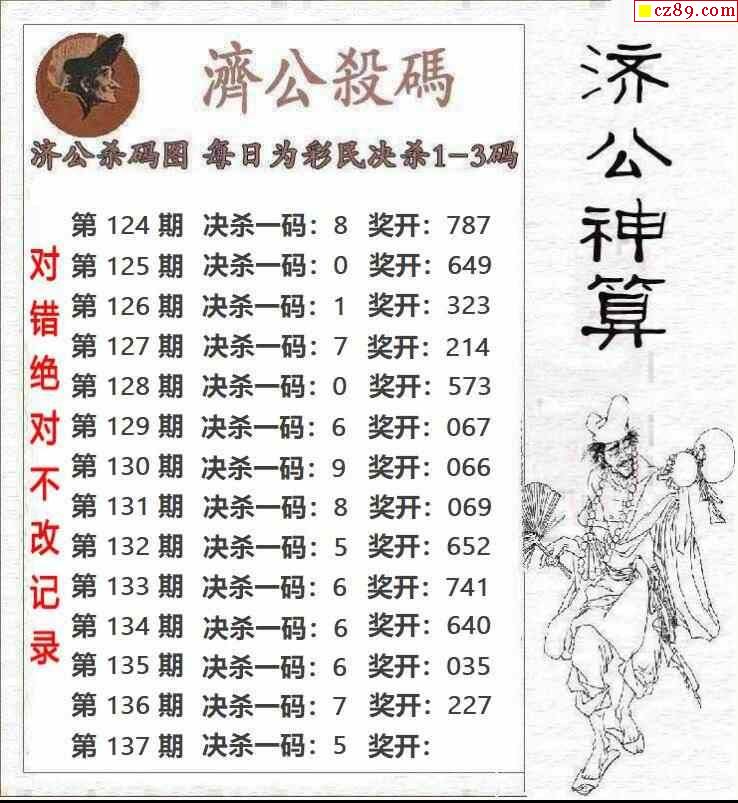 cz89.com
濟公殺碼
济公杀码图 每日为彩民决杀1-3码
第 124 期 决杀一码：8 奖开：787
第 125 期 决杀一码：0 奖开：649
第 126 期 决杀一码：1 奖开：323
第 127 期 决杀一码：7 奖开：214
第 128 期 决杀一码：0 奖开：573
第 129 期 决杀一码：6 奖开：067
第 130 期 决杀一码：9 奖开：066
第 131 期 决杀一码：8 奖开：069
第 132 期 决杀一码：5 奖开：652
第 133 期 决杀一码：6 奖开：741
第 134 期 决杀一码：6 奖开：640
第 135 期 决杀一码：6 奖开：035
第 136 期 决杀一码：7 奖开：227
第 137 期 决杀一码：5 奖开：
对错绝对不改记录
济公神算